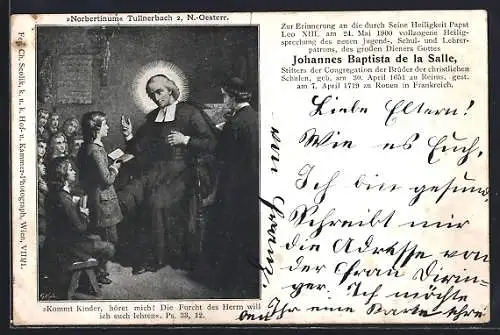 »Norbertinum« Tullnerbach 2, N.-Oesterr.
Fec. Ch. Scolik, k. u. k. Hof- u. Kammer-Photograph, Wien, VIII/1.
»Kommt Kinder, höret mich! Die Furcht des Herrn will
ich euch lehren«. Ps. 33, 12.
Zur Erinnerung an die durch Seine Heiligkeit Papst
Leo XIII. am 24. Mai 1900 vollzogene Heilig-
sprechung des neuen Jugend-, Schul- und Lehrer-
patrons, des großen Dieners Gottes
Johannes Baptista de la Salle,
Stifters der Congregation der Brüder der christlichen
Schulen, geb. am 30. April 1651 zu Reims, gest.
am 7. April 1719 zu Rouen in Frankreich.
Liebe Eltern!
Wie es Euch,
Ich bin gesund.
Schreibt mir
die Adresse von
der Frau Dirin-
ger. Ich möchte
Ihr eine Karte schrei
ben
von
Franz.